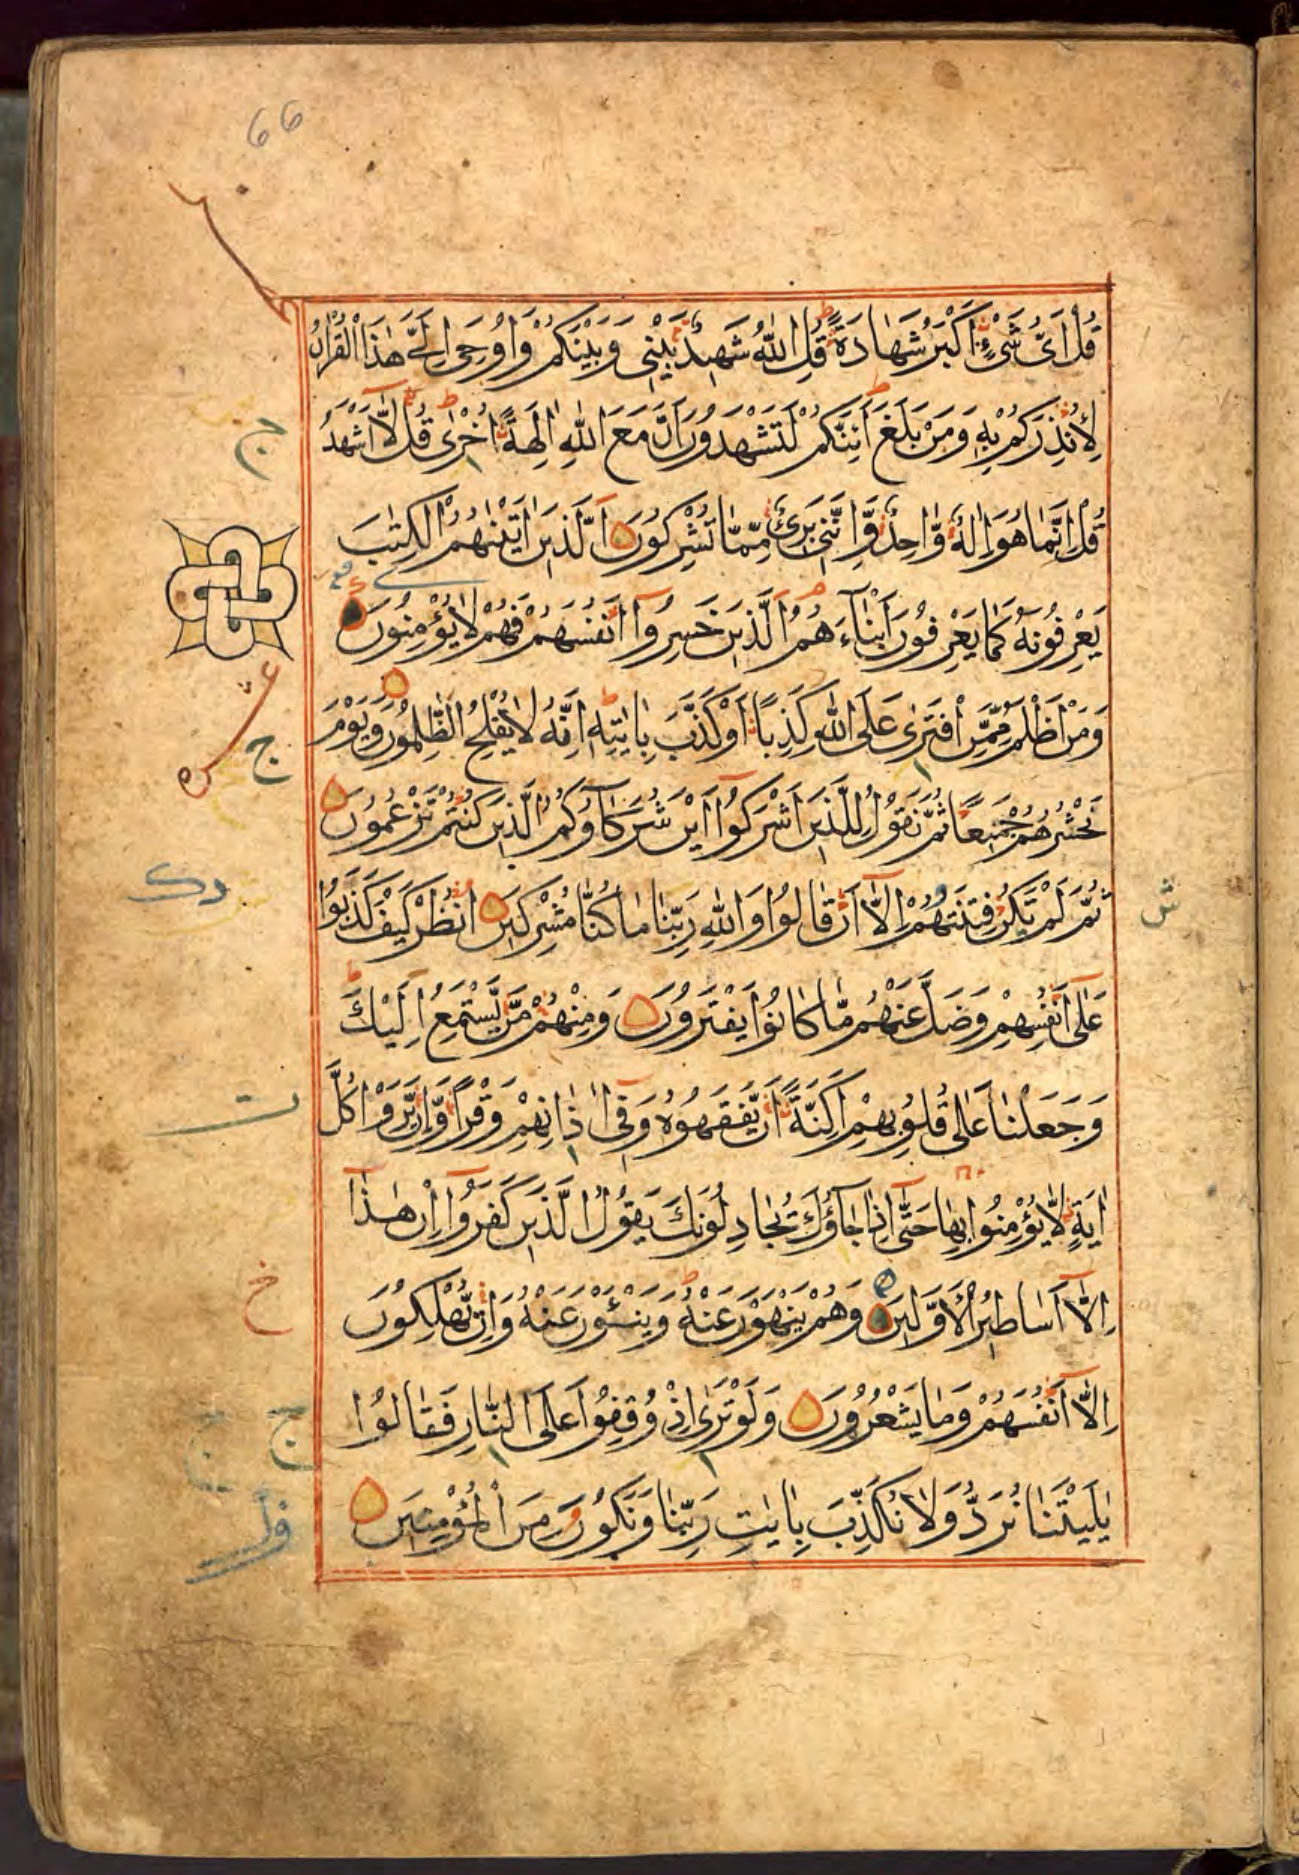 66
قُلْ اَىُّ شَىْءٍ اَكْبَرُ شَهَادَةً قُلِ اللّٰهُ شَهِيدٌ بَيْنِى وَبَيْنَكُمْ وَاُوحِىَ اِلَىَّ هٰذَا الْقُرْاٰنُ
لِاُنْذِرَكُمْ بِهِ وَمَنْ بَلَغَ اَئِنَّكُمْ لَتَشْهَدُونَ اَنَّ مَعَ اللّٰهِ اٰلِهَةً اُخْرٰى قُلْ لَّا اَشْهَدُ
قُلْ اِنَّمَا هُوَ اِلٰهٌ وَّاحِدٌ وَّاِنَّنِى بَرِىْءٌ مِّمَّا تُشْرِكُونَ اَلَّذِينَ اٰتَيْنٰهُمُ الْكِتٰبَ
يَعْرِفُونَهُ كَمَا يَعْرِفُونَ اَبْنَاءَهُمُ الَّذِينَ خَسِرُوا اَنْفُسَهُمْ فَهُمْ لَا يُؤْمِنُونَ
وَمَنْ اَظْلَمُ مِمَّنِ افْتَرٰى عَلَى اللّٰهِ كَذِبًا اَوْ كَذَّبَ بِاٰيٰتِهِ اِنَّهُ لَا يُفْلِحُ الظّٰلِمُونَ وَيَوْمَ
نَحْشُرُهُمْ جَمِيعًا ثُمَّ نَقُولُ لِلَّذِينَ اَشْرَكُوا اَيْنَ شُرَكَاؤُكُمُ الَّذِينَ كُنْتُمْ تَزْعُمُونَ
ثُمَّ لَمْ تَكُنْ فِتْنَتُهُمْ اِلَّا اَنْ قَالُوا وَاللّٰهِ رَبِّنَا مَا كُنَّا مُشْرِكِينَ اُنْظُرْ كَيْفَ كَذَبُوا
عَلٰى اَنْفُسِهِمْ وَضَلَّ عَنْهُمْ مَّا كَانُوا يَفْتَرُونَ وَمِنْهُمْ مَّنْ يَّسْتَمِعُ اِلَيْكَ
وَجَعَلْنَا عَلٰى قُلُوبِهِمْ اَكِنَّةً اَنْ يَّفْقَهُوهُ وَفِى اٰذَانِهِمْ وَقْرًا وَّاِنْ يَّرَوْا كُلَّ
اٰيَةٍ لَّا يُؤْمِنُوا بِهَا حَتّٰى اِذَا جَاؤُكَ يُجَادِلُونَكَ يَقُولُ الَّذِينَ كَفَرُوا اِنْ هٰذَا
اِلَّا اَسَاطِيرُ الْاَوَّلِينَ وَهُمْ يَنْهَوْنَ عَنْهُ وَيَنْئَوْنَ عَنْهُ وَاِنْ يُّهْلِكُونَ
اِلَّا اَنْفُسَهُمْ وَمَا يَشْعُرُونَ وَلَوْ تَرٰى اِذْ وُقِفُوا عَلَى النَّارِ فَقَالُوا
يٰلَيْتَنَا نُرَدُّ وَلَا نُكَذِّبَ بِاٰيٰتِ رَبِّنَا وَنَكُونَ مِنَ الْمُؤْمِنِينَ